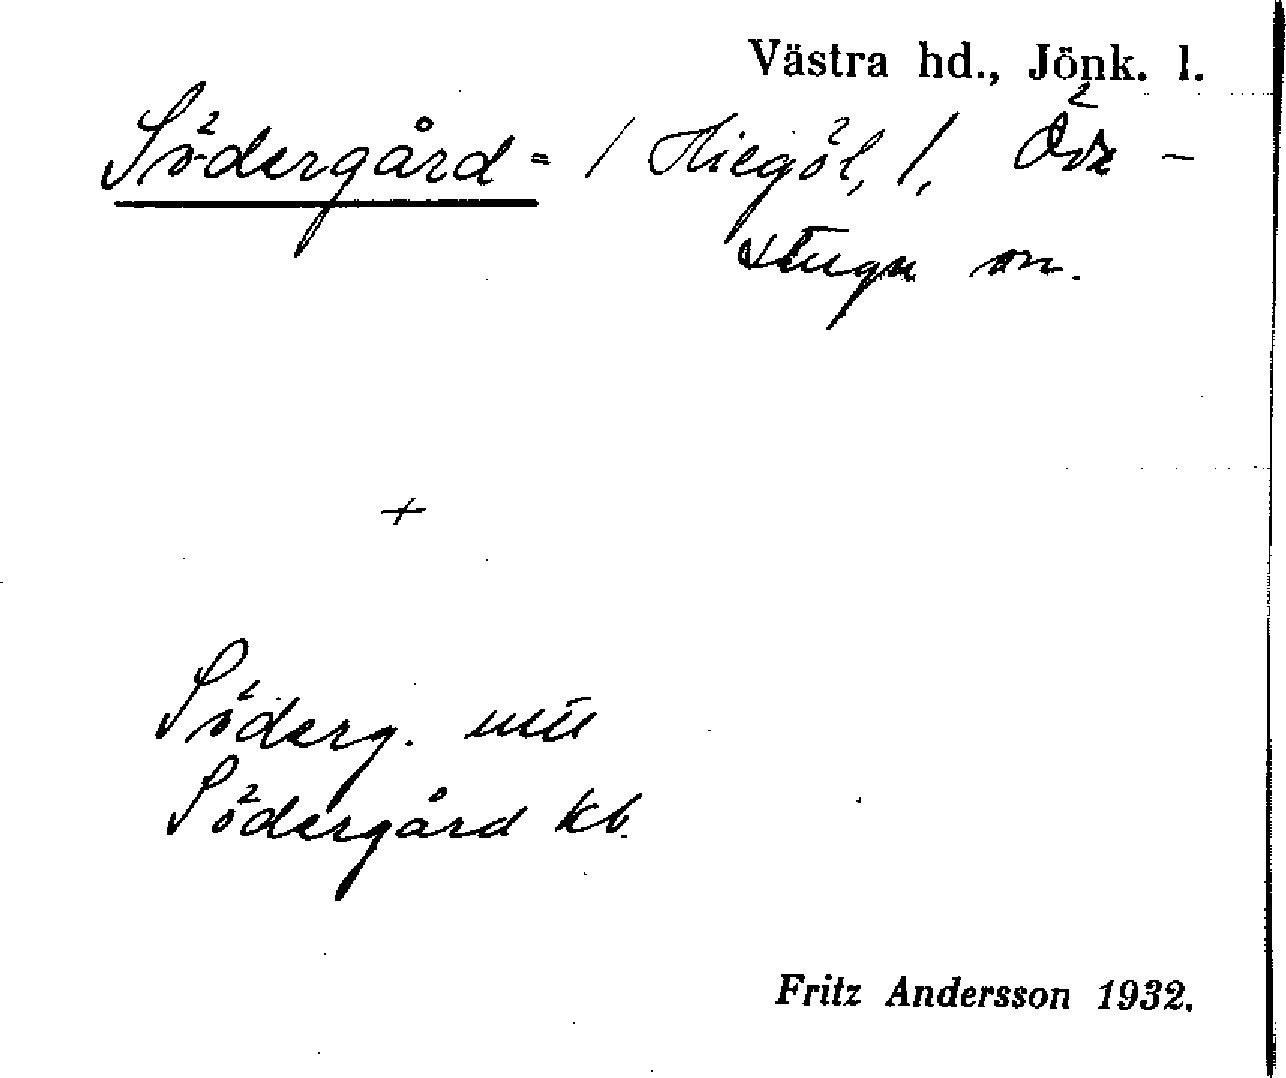 Västra hd., Jönk. l.
Södergård = / Hiegöl, /, Öx-
stugn sn.
+
Söderg. uti
Södergård kb.
Fritz Andersson 1932.